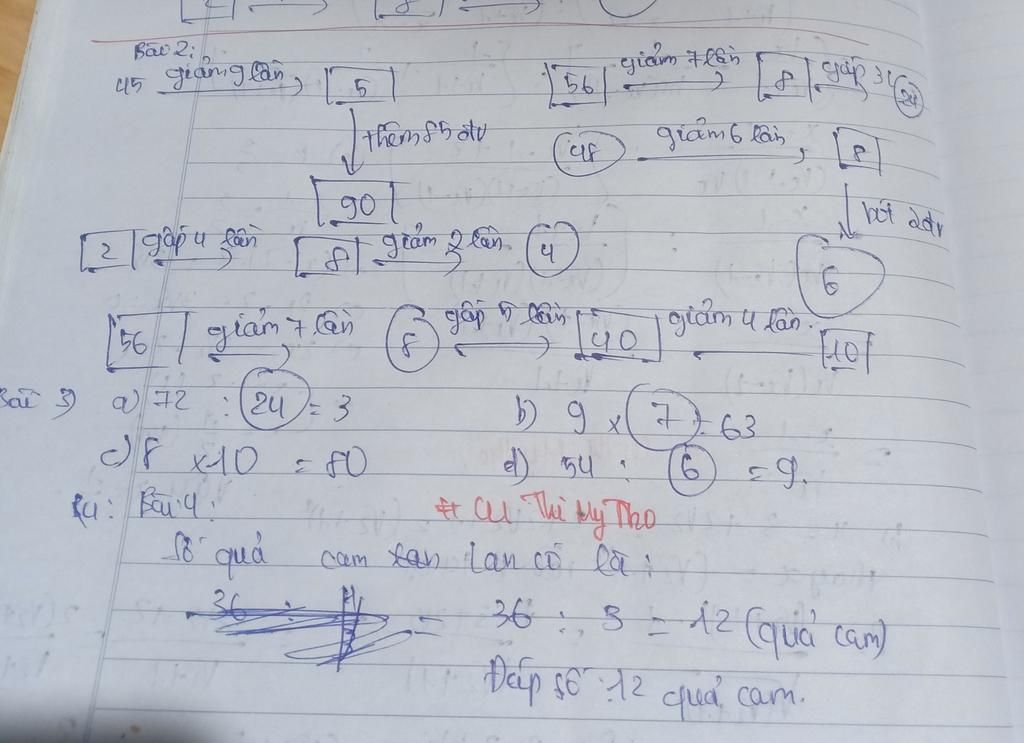 8
Bài 2:
45 giảm 9 lần 5 56 giảm 7 lần 8 gấp 3 l 24
thêm 85 đv 48 giảm 6 lần 8
90 bớt 2đv
2 gấp 4 lần 8 giảm 2 lần 4 6
56 giảm 7 lần 8 gấp 5 lần 40 giảm 4 lần. 10
Bài 3) a) 72 : 24 = 3 b) 9 x 7 = 63
c) 8 x 10 = 80 d) 54 : 6 = 9.
Bài 4: # CM Thi Mỹ Tho
Số quả cam Lan có là:
36 : = 36 : 3 = 12 (quả cam)
Đáp số : 12 quả cam.